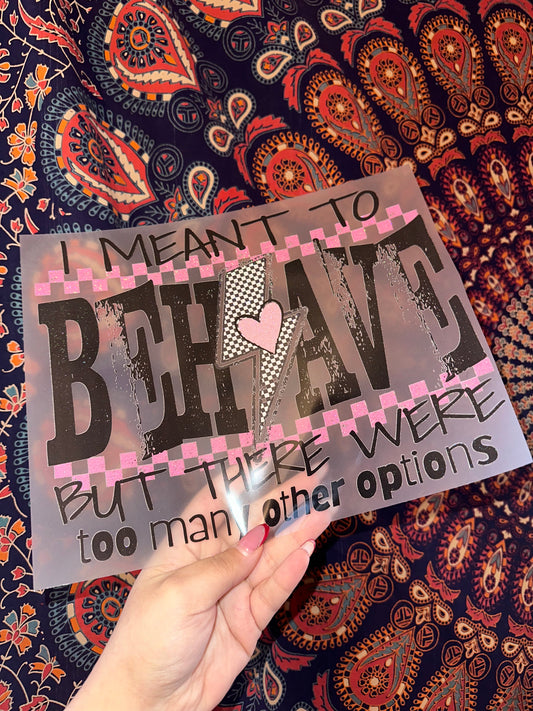 I MEANT TO
BEHAVE
BUT THERE WERE
too many other options